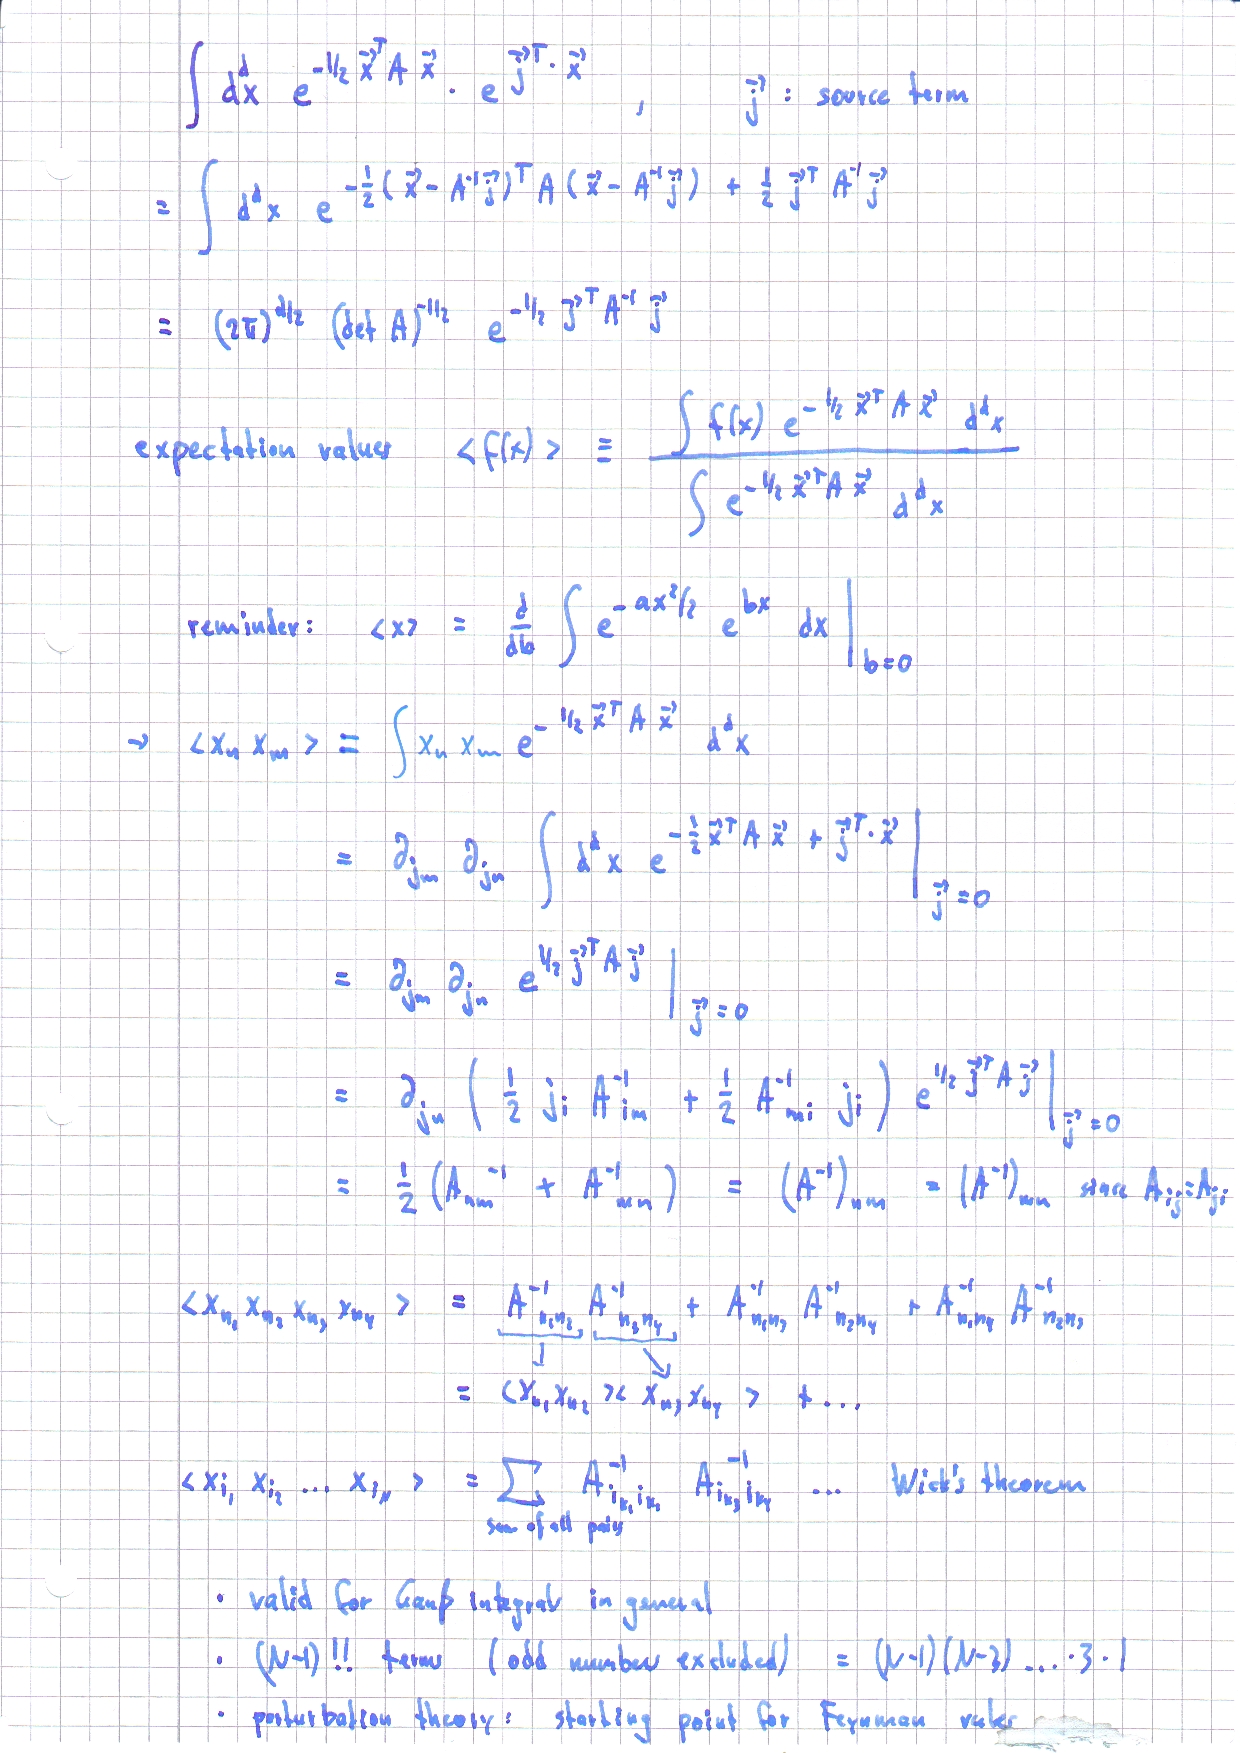 ∫ d^d x e^{-1/2 x⃗^T A x⃗} · e^{j⃗^T · x⃗} , j⃗ : source term
= ∫ d^d x e^{-1/2 (x⃗ - A^{-1} j⃗)^T A (x⃗ - A^{-1} j⃗) + 1/2 j⃗^T A^{-1} j⃗}
= (2π)^{d/2} (det A)^{-1/2} e^{-1/2 j⃗^T A^{-1} j⃗}
expectation values <f(x)> ≡ ∫ f(x) e^{-1/2 x⃗^T A x⃗} d^d x / ∫ e^{-1/2 x⃗^T A x⃗} d^d x
reminder: <x> = d/db ∫ e^{-ax²/2} e^{bx} dx |_{b=0}
→ <x_n x_m> = ∫ x_n x_m e^{-1/2 x⃗^T A x⃗} d^d x
= ∂_{j_m} ∂_{j_n} ∫ d^d x e^{-1/2 x⃗^T A x⃗ + j⃗^T · x⃗} |_{j⃗=0}
= ∂_{j_m} ∂_{j_n} e^{1/2 j⃗^T A j⃗} |_{j⃗=0}
= ∂_{j_n} ( 1/2 j_i A^{-1}_{im} + 1/2 A^{-1}_{mi} j_i ) e^{1/2 j⃗^T A j⃗} |_{j⃗=0}
= 1/2 (A_{nm}^{-1} + A^{-1}_{mn}) = (A^{-1})_{nm} = (A^{-1})_{mn} since A_{ij}=A_{ji}
<x_{n_1} x_{n_2} x_{n_3} x_{n_4}> = A^{-1}_{n_1 n_2} A^{-1}_{n_3 n_4} + A^{-1}_{n_1 n_3} A^{-1}_{n_2 n_4} + A^{-1}_{n_1 n_4} A^{-1}_{n_2 n_3}
= <x_{n_1} x_{n_2}><x_{n_3} x_{n_4}> + ...
<x_{i_1} x_{i_2} ... x_{i_N}> = ∑ A^{-1}_{i_{k_1} i_{k_2}} A^{-1}_{i_{k_3} i_{k_4}} ... Wick's theorem
sum of all pairs
· valid for Gauß integrals in general
· (N-1)!! terms (odd number excluded) = (N-1)(N-3) ... · 3 · 1
· perturbation theory: starting point for Feynman rules